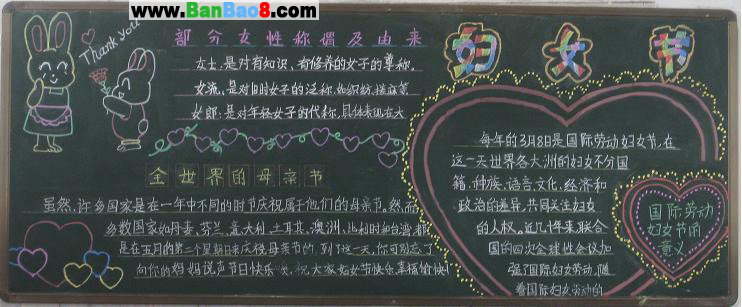 www.BanBao8.com
Thank you
部分女性称谓及由来
女士，是对有知识、有修养的女子的尊称。
女流，是对旧时女子的泛称，如织纺、搓麻等
女郎：是对年轻女子的代称，具体表现在大
全世界的母亲节
虽然，许多国家是在一年中不同的时节庆祝属于他们的母亲节，然而
多数国家如丹麦、芬兰、意大利、土耳其、澳洲、比利时和台湾，都
是在五月的第二个星期日来庆祝母亲节的。到了这一天，你可别忘了
向你的妈妈说声节日快乐，祝大家妇女节快乐，幸福愉快！
妇女节
每年的3月8日是国际劳动妇女节，在
这一天世界各大洲的妇女不分国
籍、种族、语言、文化、经济和
政治的差异，共同关注妇女
的人权，近几十年来，联合
国的四次全球性会议加
强了国际妇女劳动，随
着国际妇女劳动的
国际劳动
妇女节的
意义